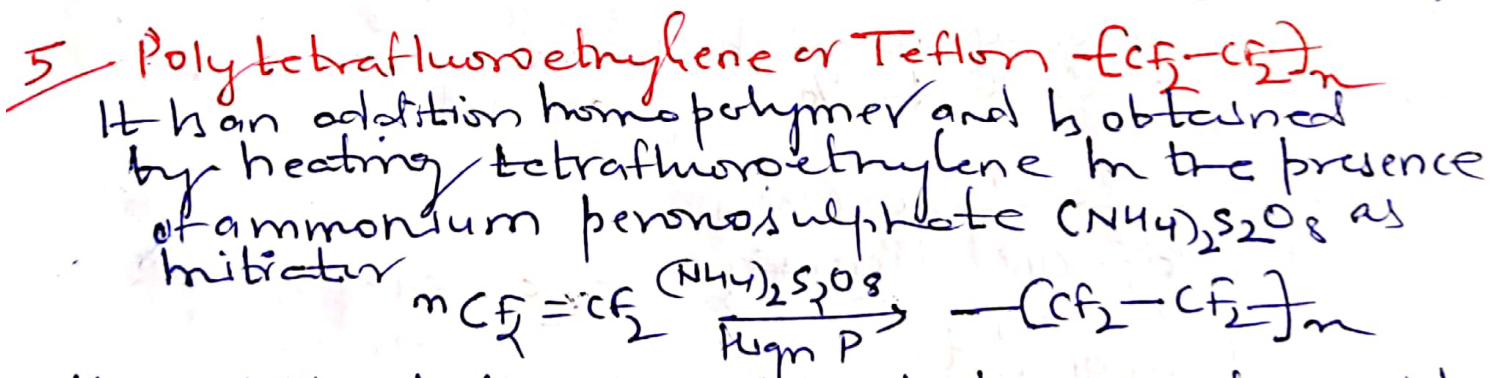 5 Polytetrafluoroethylene or Teflon -[CF₂-CF₂]ₙ
It is an addition homopolymer and is obtained
by heating tetrafluoroethylene in the presence
of ammonium peroxosulphate (NH4)₂S₂O₈ as
initiator
nCF₂=CF₂ (NH4)₂S₂O₈ High P → -[CF₂-CF₂]ₙ